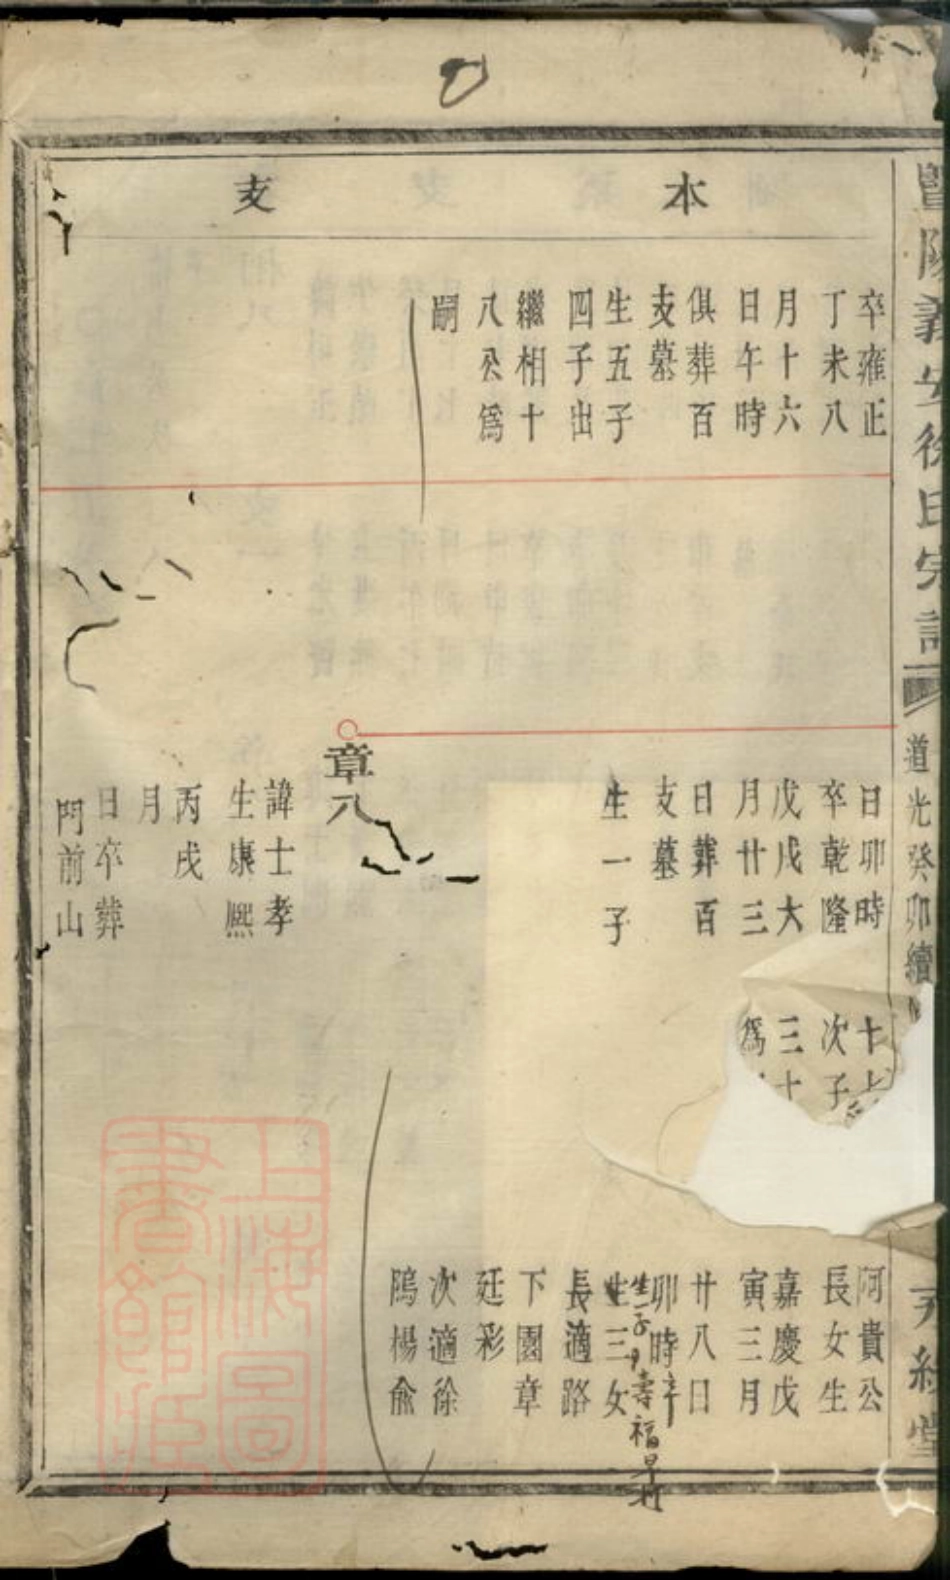 暨陽義安徐氏宗譜
道光癸卯續
本
支
卒雍正
丁未八
月十六
日午時
俱葬百
支墓
生五子
四子出
繼相十
八公爲
嗣
日卯時
卒乾隆
戊戌大
月廿三
日葬百
支墓
生一子
章八
諱士孝
生康熙
丙戌
月
日卒葬
門前山
十七
次子
三十
爲
阿貴公
長女生
嘉慶戊
寅三月
廿八日
卯時卒
生一子 壽福早
生三女
長適路
下園章
廷彩
次適徐
隝楊俞
上海圖
書館藏